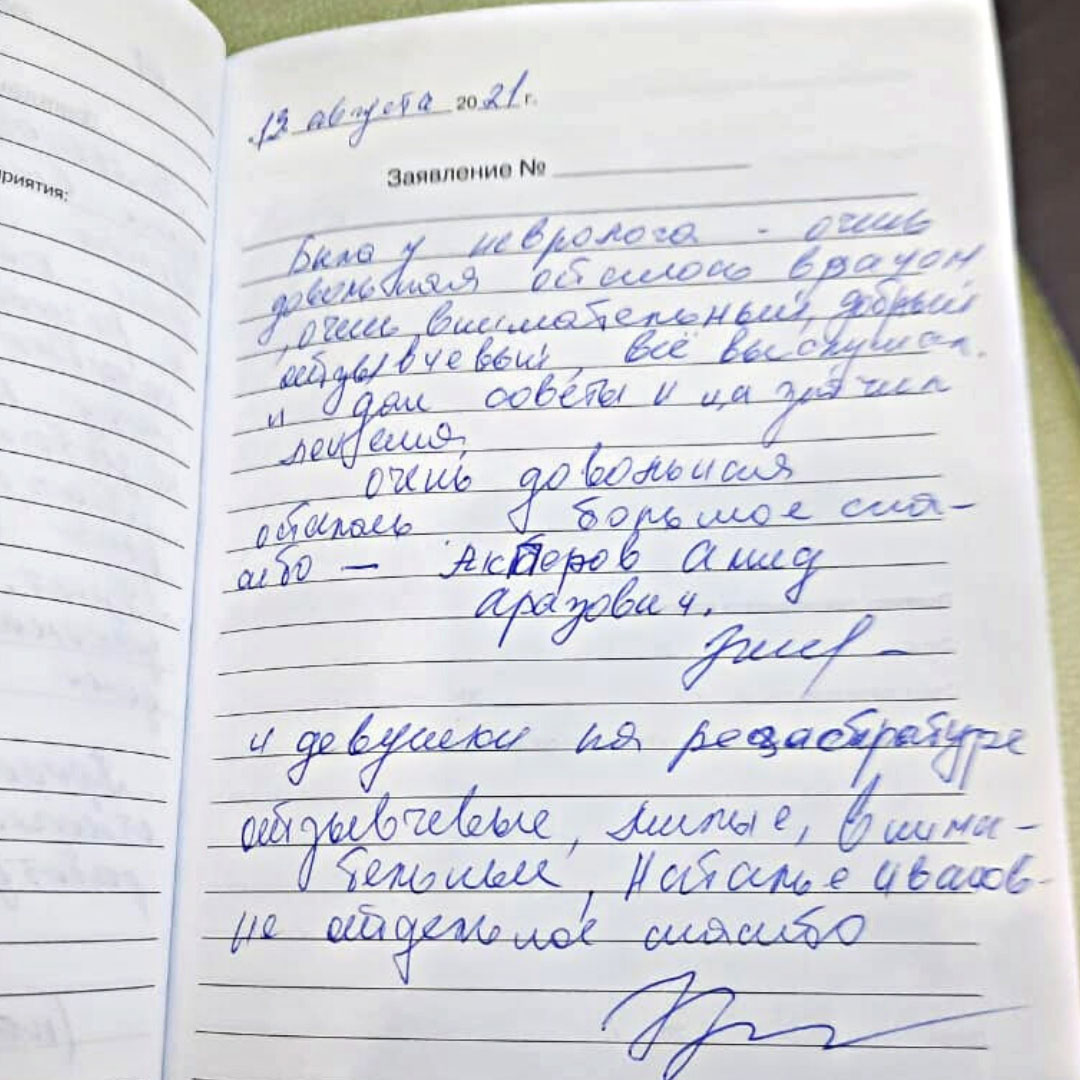 приятия:
13 августа 2021 г.
Заявление №
Была у невролога - очень
довольная осталась врачом
, очень внимательный, добрый
отзывчевый, всё выслушал.
и дал советы и назначил
лечения.
очень довольная
осталась большое спа-
сибо — Акперов Амид
Аразович.
и девушки на
отзывчевые, милые, внима-
тельные, Наталье Иванов-
не отдельное спасибо